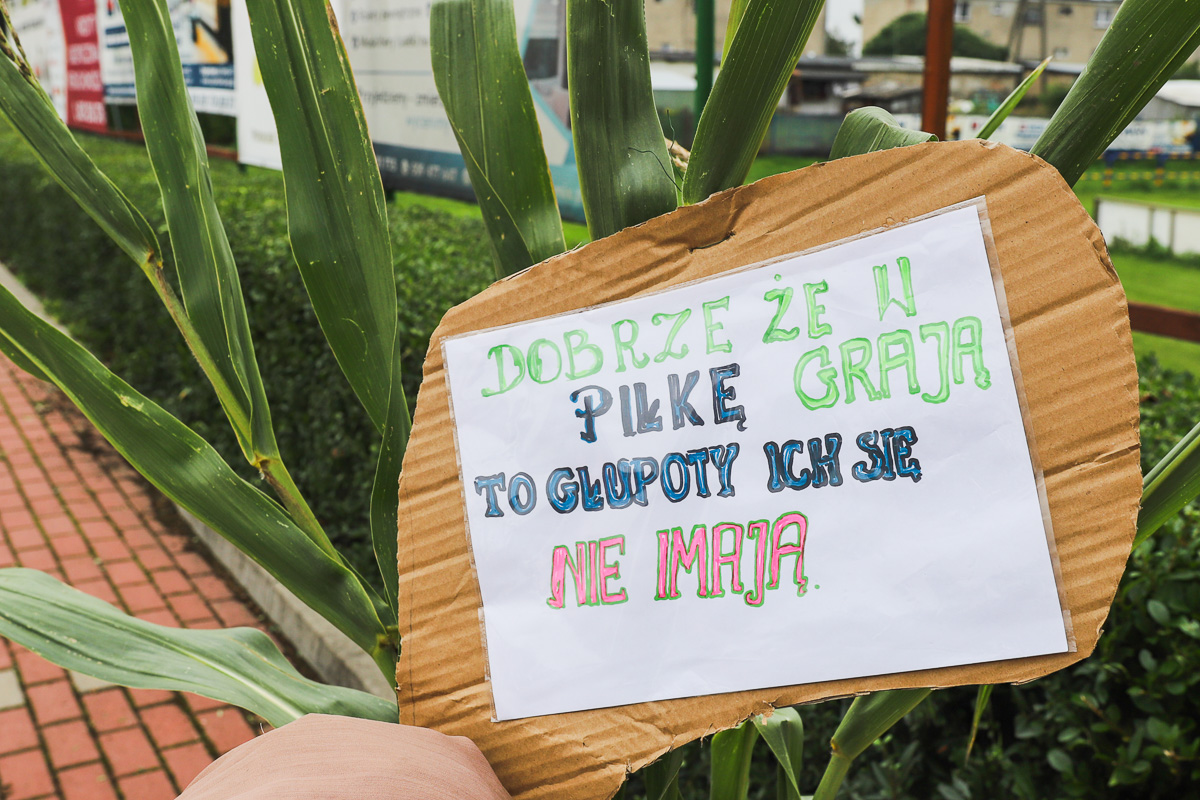 DOBRZE ŻE W
PIŁKĘ GRAJĄ
TO GŁUPOTY ICH SIĘ
NIE IMAJĄ.